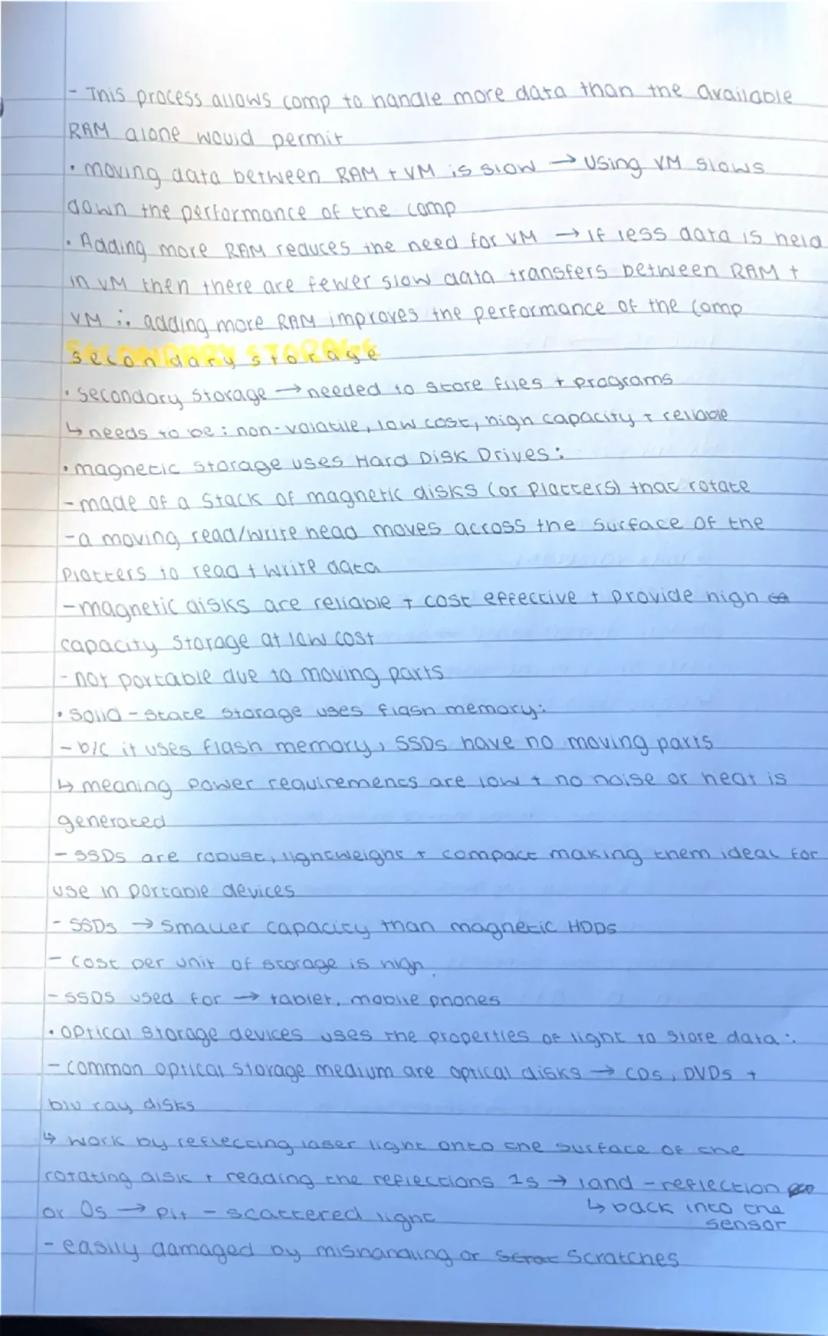 - This process allows comp to handle more data than the available
RAM alone would permit
• moving data between RAM + VM is slow → using VM slows
down the performance of the comp
• Adding more RAM reduces the need for VM → if less data is held
in VM then there are fewer slow data transfers between RAM +
VM ∴ adding more RAM improves the performance of the comp
secondary storage
• secondary storage → needed to store files + programs
↳ needs to be: non-volatile, low cost, high capacity + reliable
• magnetic storage uses Hard Disk Drives:
- made of a stack of magnetic disks (or platters) that rotate
- a moving read/write head moves across the surface of the
platters to read + write data
- magnetic disks are reliable + cost effective + provide high
capacity storage at low cost
- not portable due to moving parts
• solid-state storage uses flash memory:
- b/c it uses flash memory, SSDs have no moving parts
↳ meaning power requirements are low + no noise or heat is
generated
- SSDs are robust, lightweight + compact making them ideal for
use in portable devices
- SSDs → smaller capacity than magnetic HDDs
- cost per unit of storage is high.
- SSDs used for → tablet, mobile phones
• optical storage devices uses the properties of light to store data:
- common optical storage medium are optical disks → CDs, DVDs +
blu ray disks
↳ work by reflecting laser light onto the surface of the
rotating disk + reading the reflections 1s → land - reflection
or 0s → pit - scattered light ↳ back into the
sensor
- easily damaged by mishandling or scrat scratches